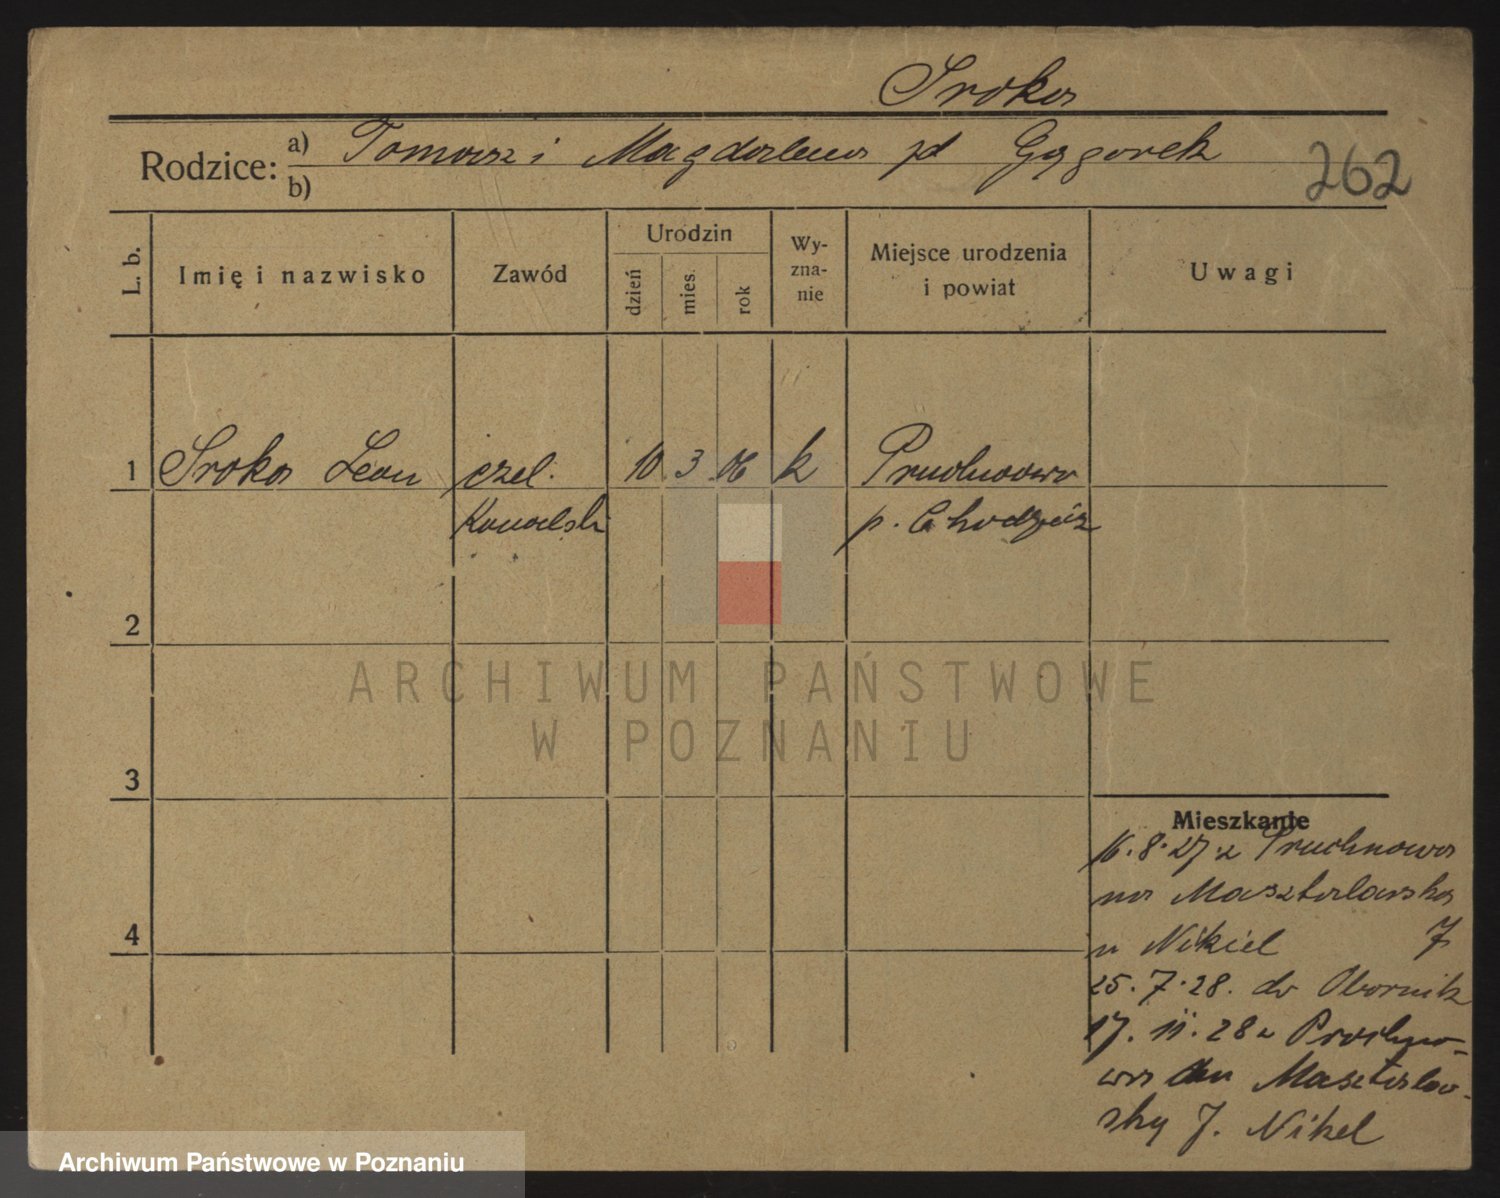 Sroka
Rodzice: a) Tomasz i Magdalena zd Gągorek
b)
262
L. b. Imię i nazwisko Zawód Urodzin dzień mies. rok Wy-zna-nie Miejsce urodzenia i powiat Uwagi
1 Sroka Leon czel. 10 3 06 k Pruchnowo
Kowalski p. Chodzież
2
ARCHIWUM PAŃSTWOWE
W POZNANIU
3
Mieszkanie
16.8.27 z Pruchnowa
na Masztalarska
4
u Nikiel 7
25.7.28. do Obornik
17.11.28 z Prochno-
wa Masztalar-
sky 7. Nikel
Archiwum Państwowe w Poznaniu